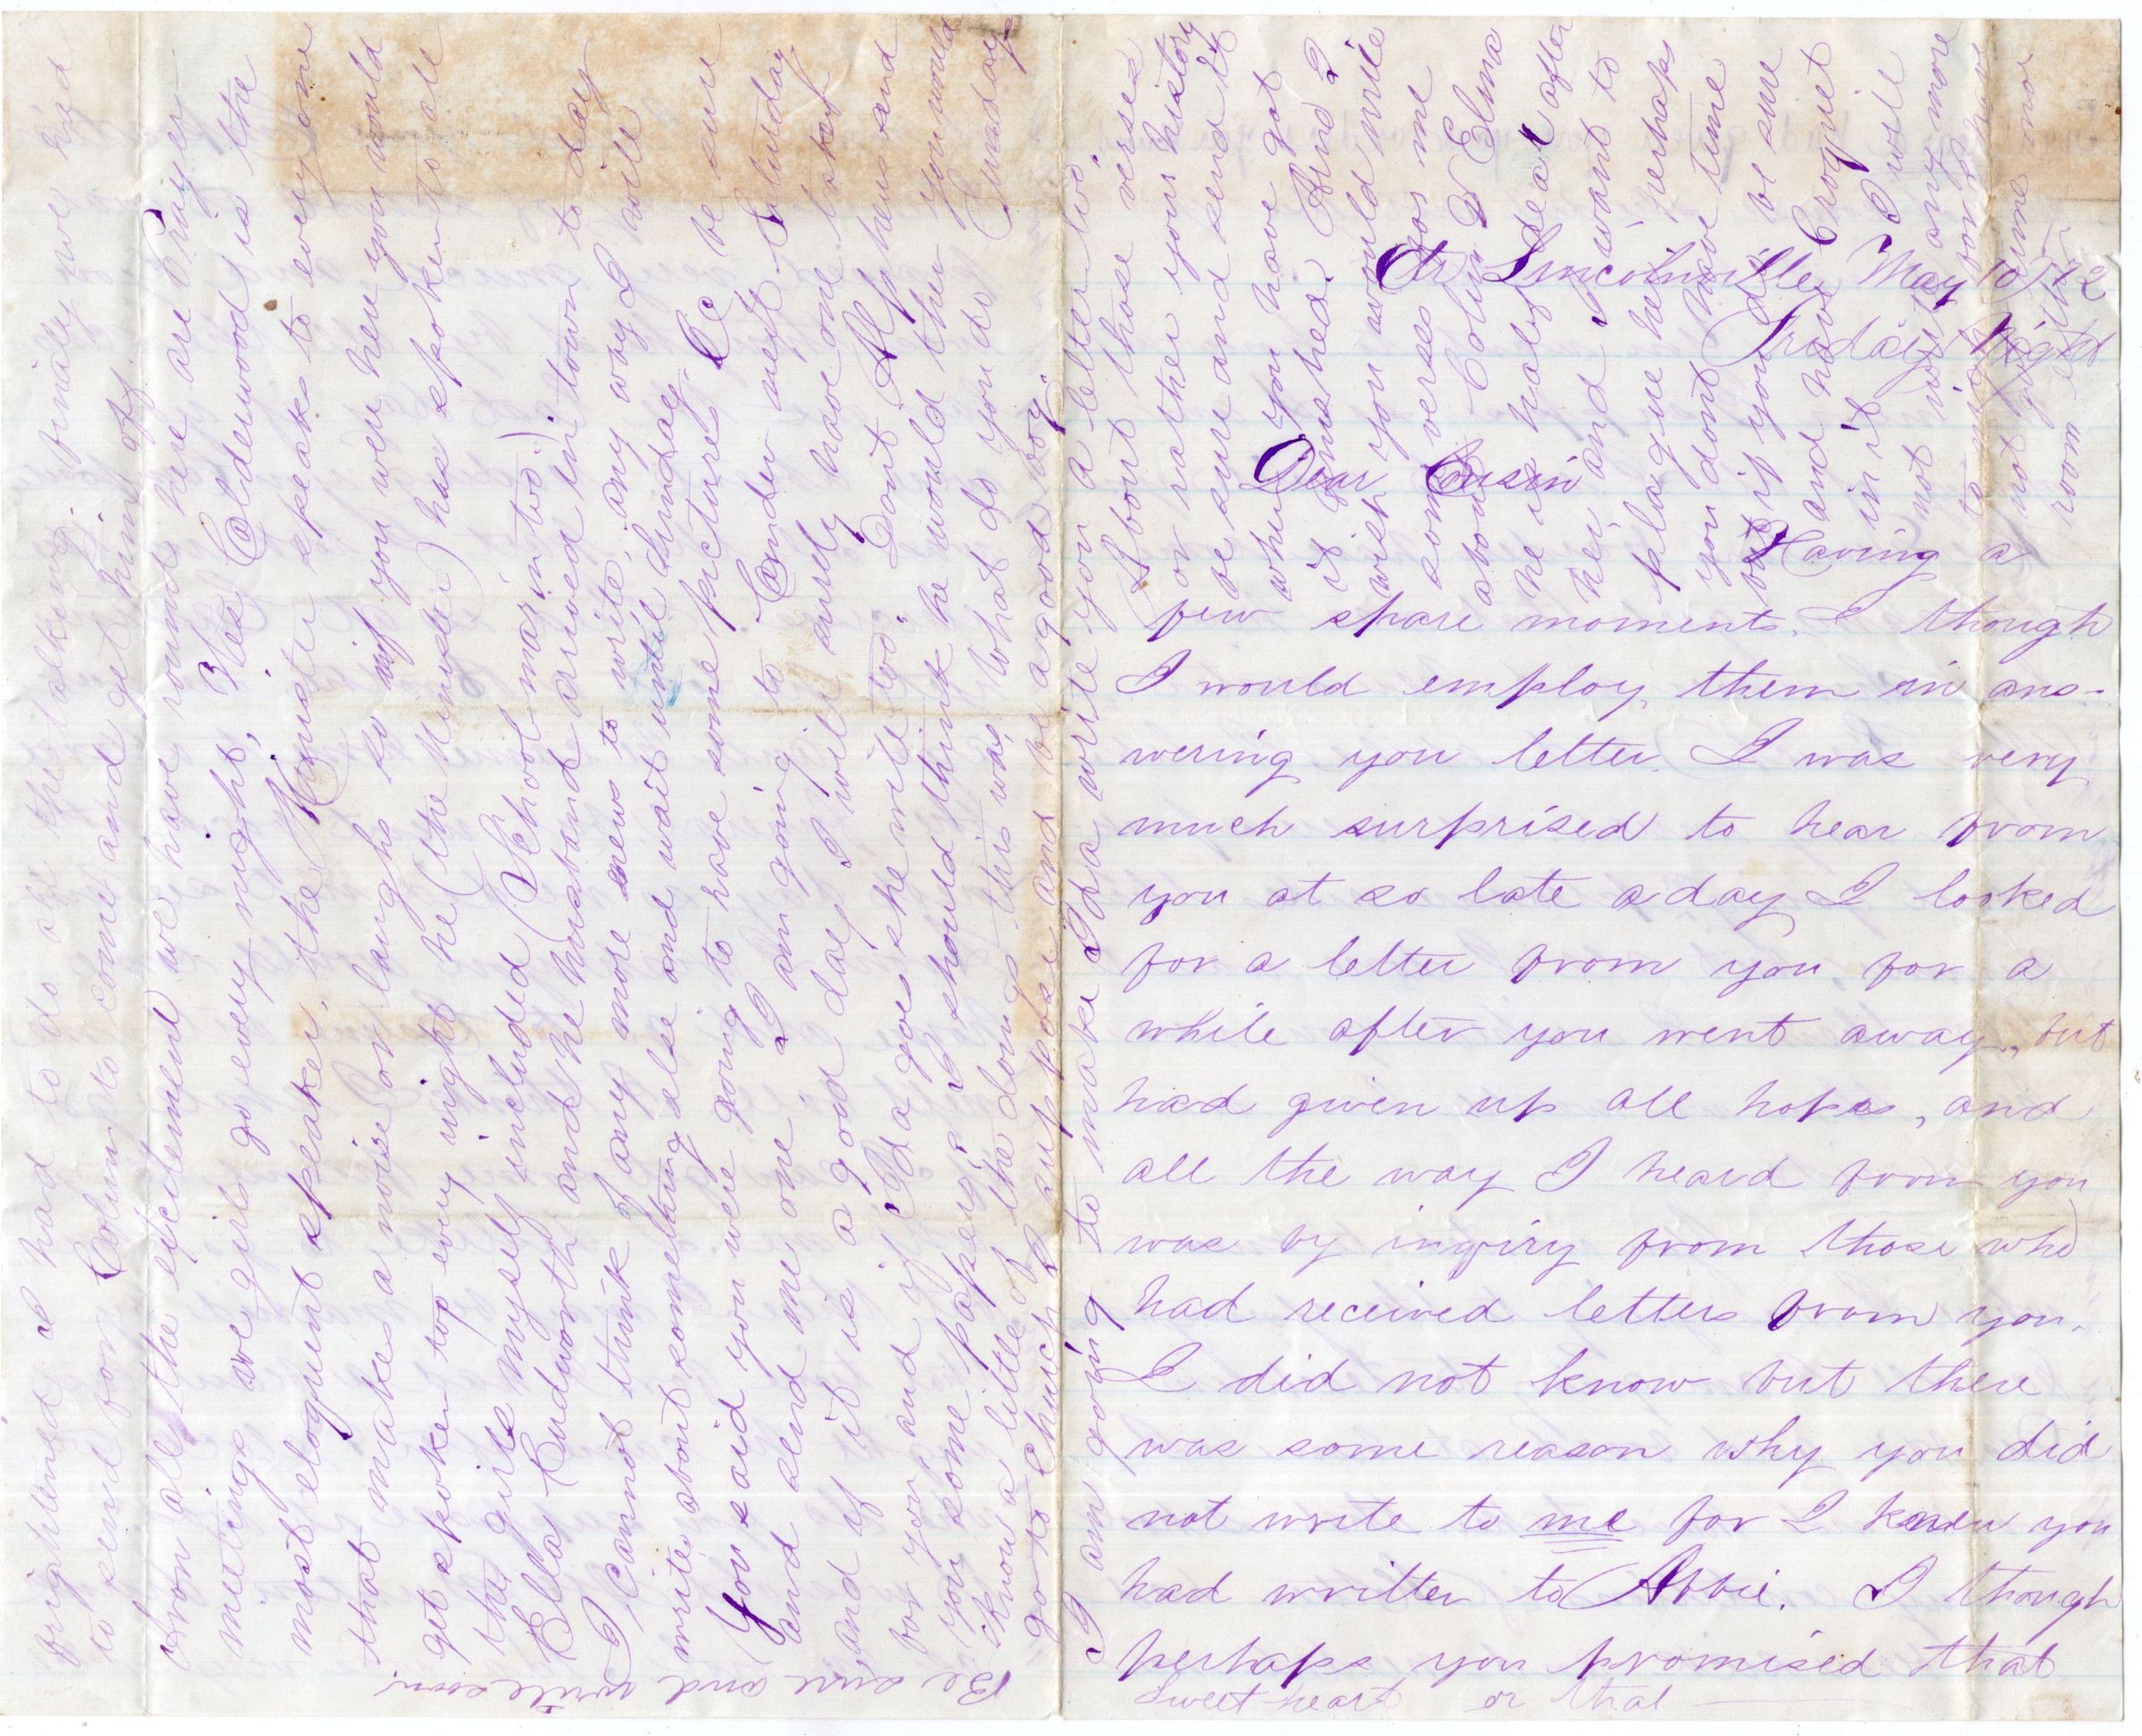 Lincolnville, May 10/72
Friday Night
Dear Cousin
Having a
few spare moments. I though
I would employ, them in ans-
wering you letter. I was very
much surprised to hear from
you at so late a day I looked
for a letter from you, for a
while after you went away, but
had given up all hopes, and
all the way I heard from you
was by inqiry from those who
had received letters from you.
I did not know but there
was some reason why you did
not write to me for I knew you
had written to Abbie. I though
perhaps you promised that
sweet heart or that
frightened I had to do all the talking. finally we had
to send for Colum to come and get him off
all the excitement we have round here are Prayer
meetings we girls go every night, Wes Calderwood is the
most eloquent speaker, the Minister speaks to every one
that makes a noise or laughs so if you were here you would
get spoken to every night he (the Minister) has spoken to all
the girls myself included (School-marm two.)
Ella Cudworth and he husband arrived in town to day
I cannot think of any more news to write, any way I will
write about something else and wait until Sunday.
You said you were going to have some pictures be sure
and send me one. I am going to Camden next Saturday
and if it is a good day I will surely have one taken
for you, and if Ida goes she will too. Dont Alpheus send
you some papers? I should think he would then you would
know a little of the doings this way. What do you do Sundays
go to Church I suppose and be a good boy.
Be sure and write soon.
I am going to make Ida write you a letter two.
About those verses
or rather your history
be sure and send it
when you have got
it finished. And I
wish you would write
some verses for me
about Colum & Elma
he is half dead after
her and I want to
plague her perhaps
you dont have time
but if you do be sure
and have Croquet
in it I will
not write any more
to night for I have
not got time nor
room either